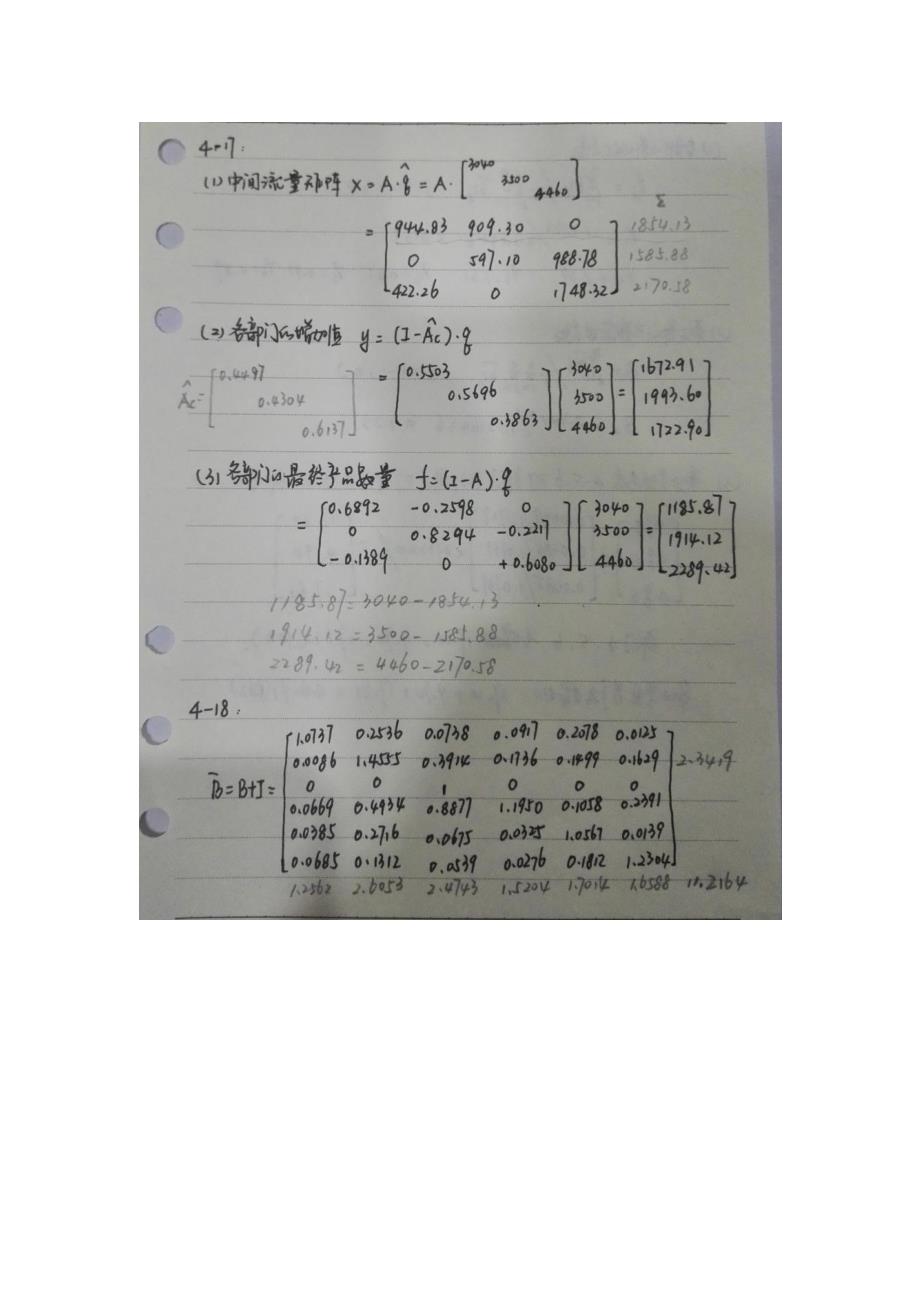 4-17:
(1) 中间流量矩阵 X = A·q̂ = A·[3040 3500 4460]
Σ
= [944.83 909.30 0] 1854.13
0 597.10 988.78 1585.88
422.26 0 1748.32 2170.58
(2) 各部门的增加值 y = (I-Âc)·q
Âc = [0.4497 0.4304 0.6137] = [0.5503 0.5696 0.3863] [3040 3500 4460] = [1672.91 1993.60 1722.90]
(3) 各部门的最终产品数量 f=(I-A)·q
= [0.6892 -0.2598 0] [3040] = [1185.87]
0 0.8294 -0.2217 3500 1914.12
-0.1389 0 +0.6080 4460 2289.42
1185.87=3040-1854.13
1914.12=3500-1585.88
2289.42=4460-2170.58
4-18:
1.0737 0.2536 0.0738 0.0917 0.2078 0.0125
0.0086 1.4555 0.3914 0.1736 0.1499 0.1629 2.3419
B̄=B+I= 0 0 1 0 0 0
0.0669 0.4934 0.8877 1.1950 0.1058 0.2391
0.0385 0.2716 0.0675 0.0325 1.0567 0.0139
0.0685 0.1312 0.0539 0.0276 0.1812 1.2304
1.2562 2.6053 2.4743 1.5204 1.7014 1.6588 11.2164